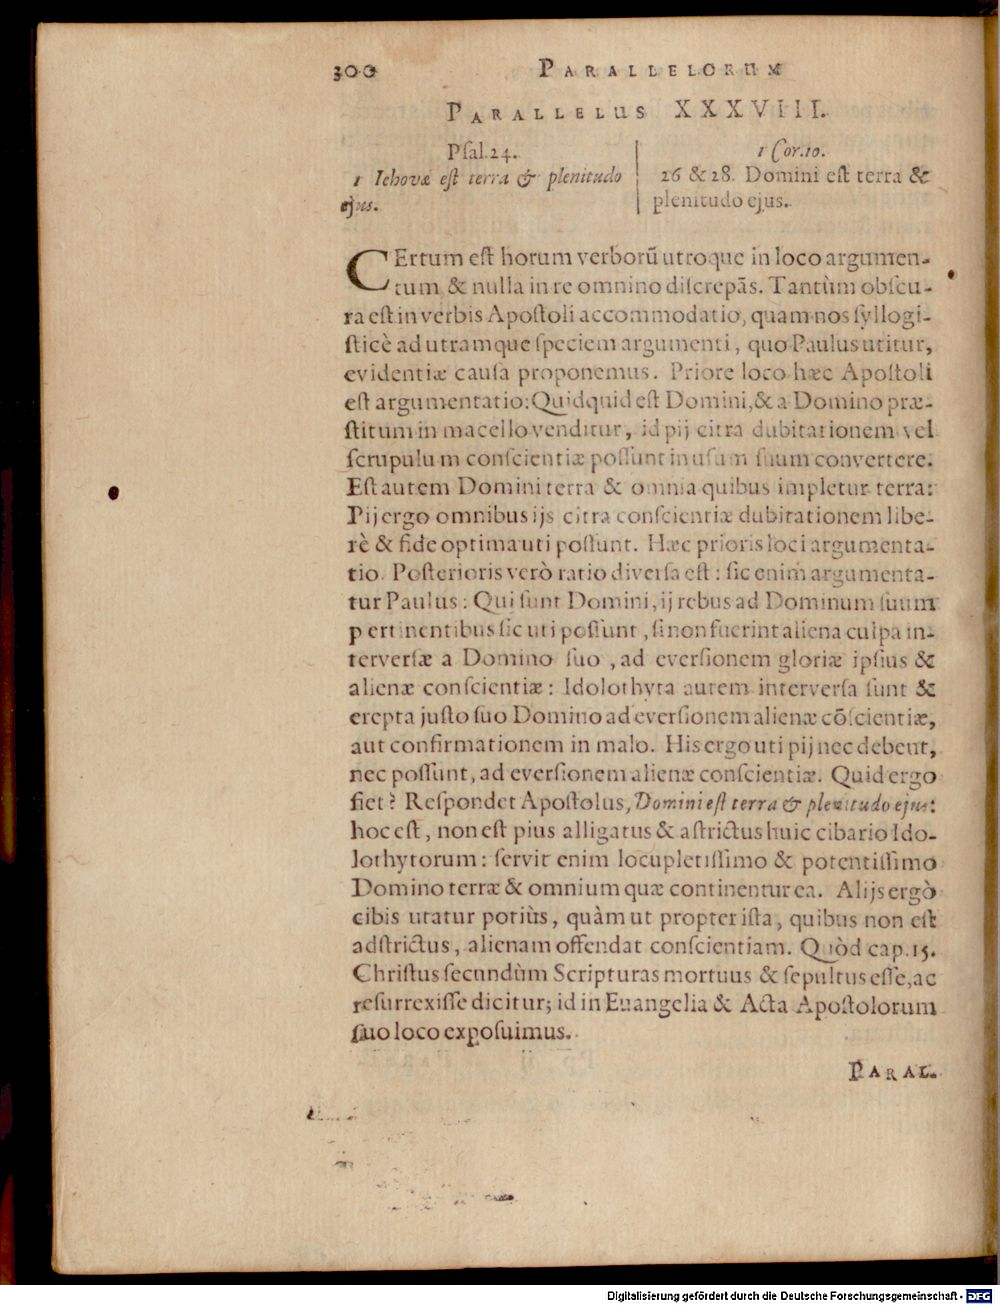 300 PARALLELORUM
PARALLELUS XXXVIII.
Psal.24.
1 Iehovæ est terra & plenitudo
ejus.
1 Cor.10.
26 & 28. Domini est terra &
plenitudo ejus.
CErtum est horum verborũ utroque in loco argumen-
tum & nulla in re omnino discrepãs. Tantùm obscu-
ra est in verbis Apostoli accommodatio, quam nos syllogi-
sticè ad utramque speciem argumenti, quo Paulus utitur,
evidentiæ causa proponemus. Priore loco hæc Apostoli
est argumentatio: Quidquid est Domini, & a Domino præ-
stitum in macello venditur, id pij citra dubitationem vel
scrupulum conscientiæ possunt in usum suum convertere.
Est autem Domini terra & omnia quibus impletur terra:
Pij ergo omnibus ijs citra conscientiæ dubitationem libe-
rè & fide optima uti possunt. Hæc prioris loci argumenta-
tio. Posterioris verò ratio diversa est: sic enim argumenta-
tur Paulus: Qui sunt Domini, ij rebus ad Dominum suum
pertinentibus sic uti possunt, si non fuerint aliena culpa in-
terversæ a Domino suo, ad eversionem gloriæ ipsius &
alienæ conscientiæ: Idolothyta autem interversa sunt &
erepta justo suo Domino ad eversionem alienæ cõscientiæ,
aut confirmationem in malo. His ergo uti pij nec debent,
nec possunt, ad eversionem alienæ conscientiæ. Quid ergo
fiet? Respondet Apostolus, Domini est terra & plenitudo ejus:
hoc est, non est pius alligatus & astrictus huic cibario Ido-
lothytorum: servit enim locupletissimo & potentissimo
Domino terræ & omnium quæ continentur ea. Alijs ergò
cibis utatur potiùs, quàm ut propter ista, quibus non est
adstrictus, alienam offendat conscientiam. Quòd cap.15.
Christus secundùm Scripturas mortuus & sepultus esse, ac
resurrexisse dicitur; id in Euangelia & Acta Apostolorum
suo loco exposuimus.
PARAL.
Digitalisierung gefördert durch die Deutsche Forschungsgemeinschaft - DFG